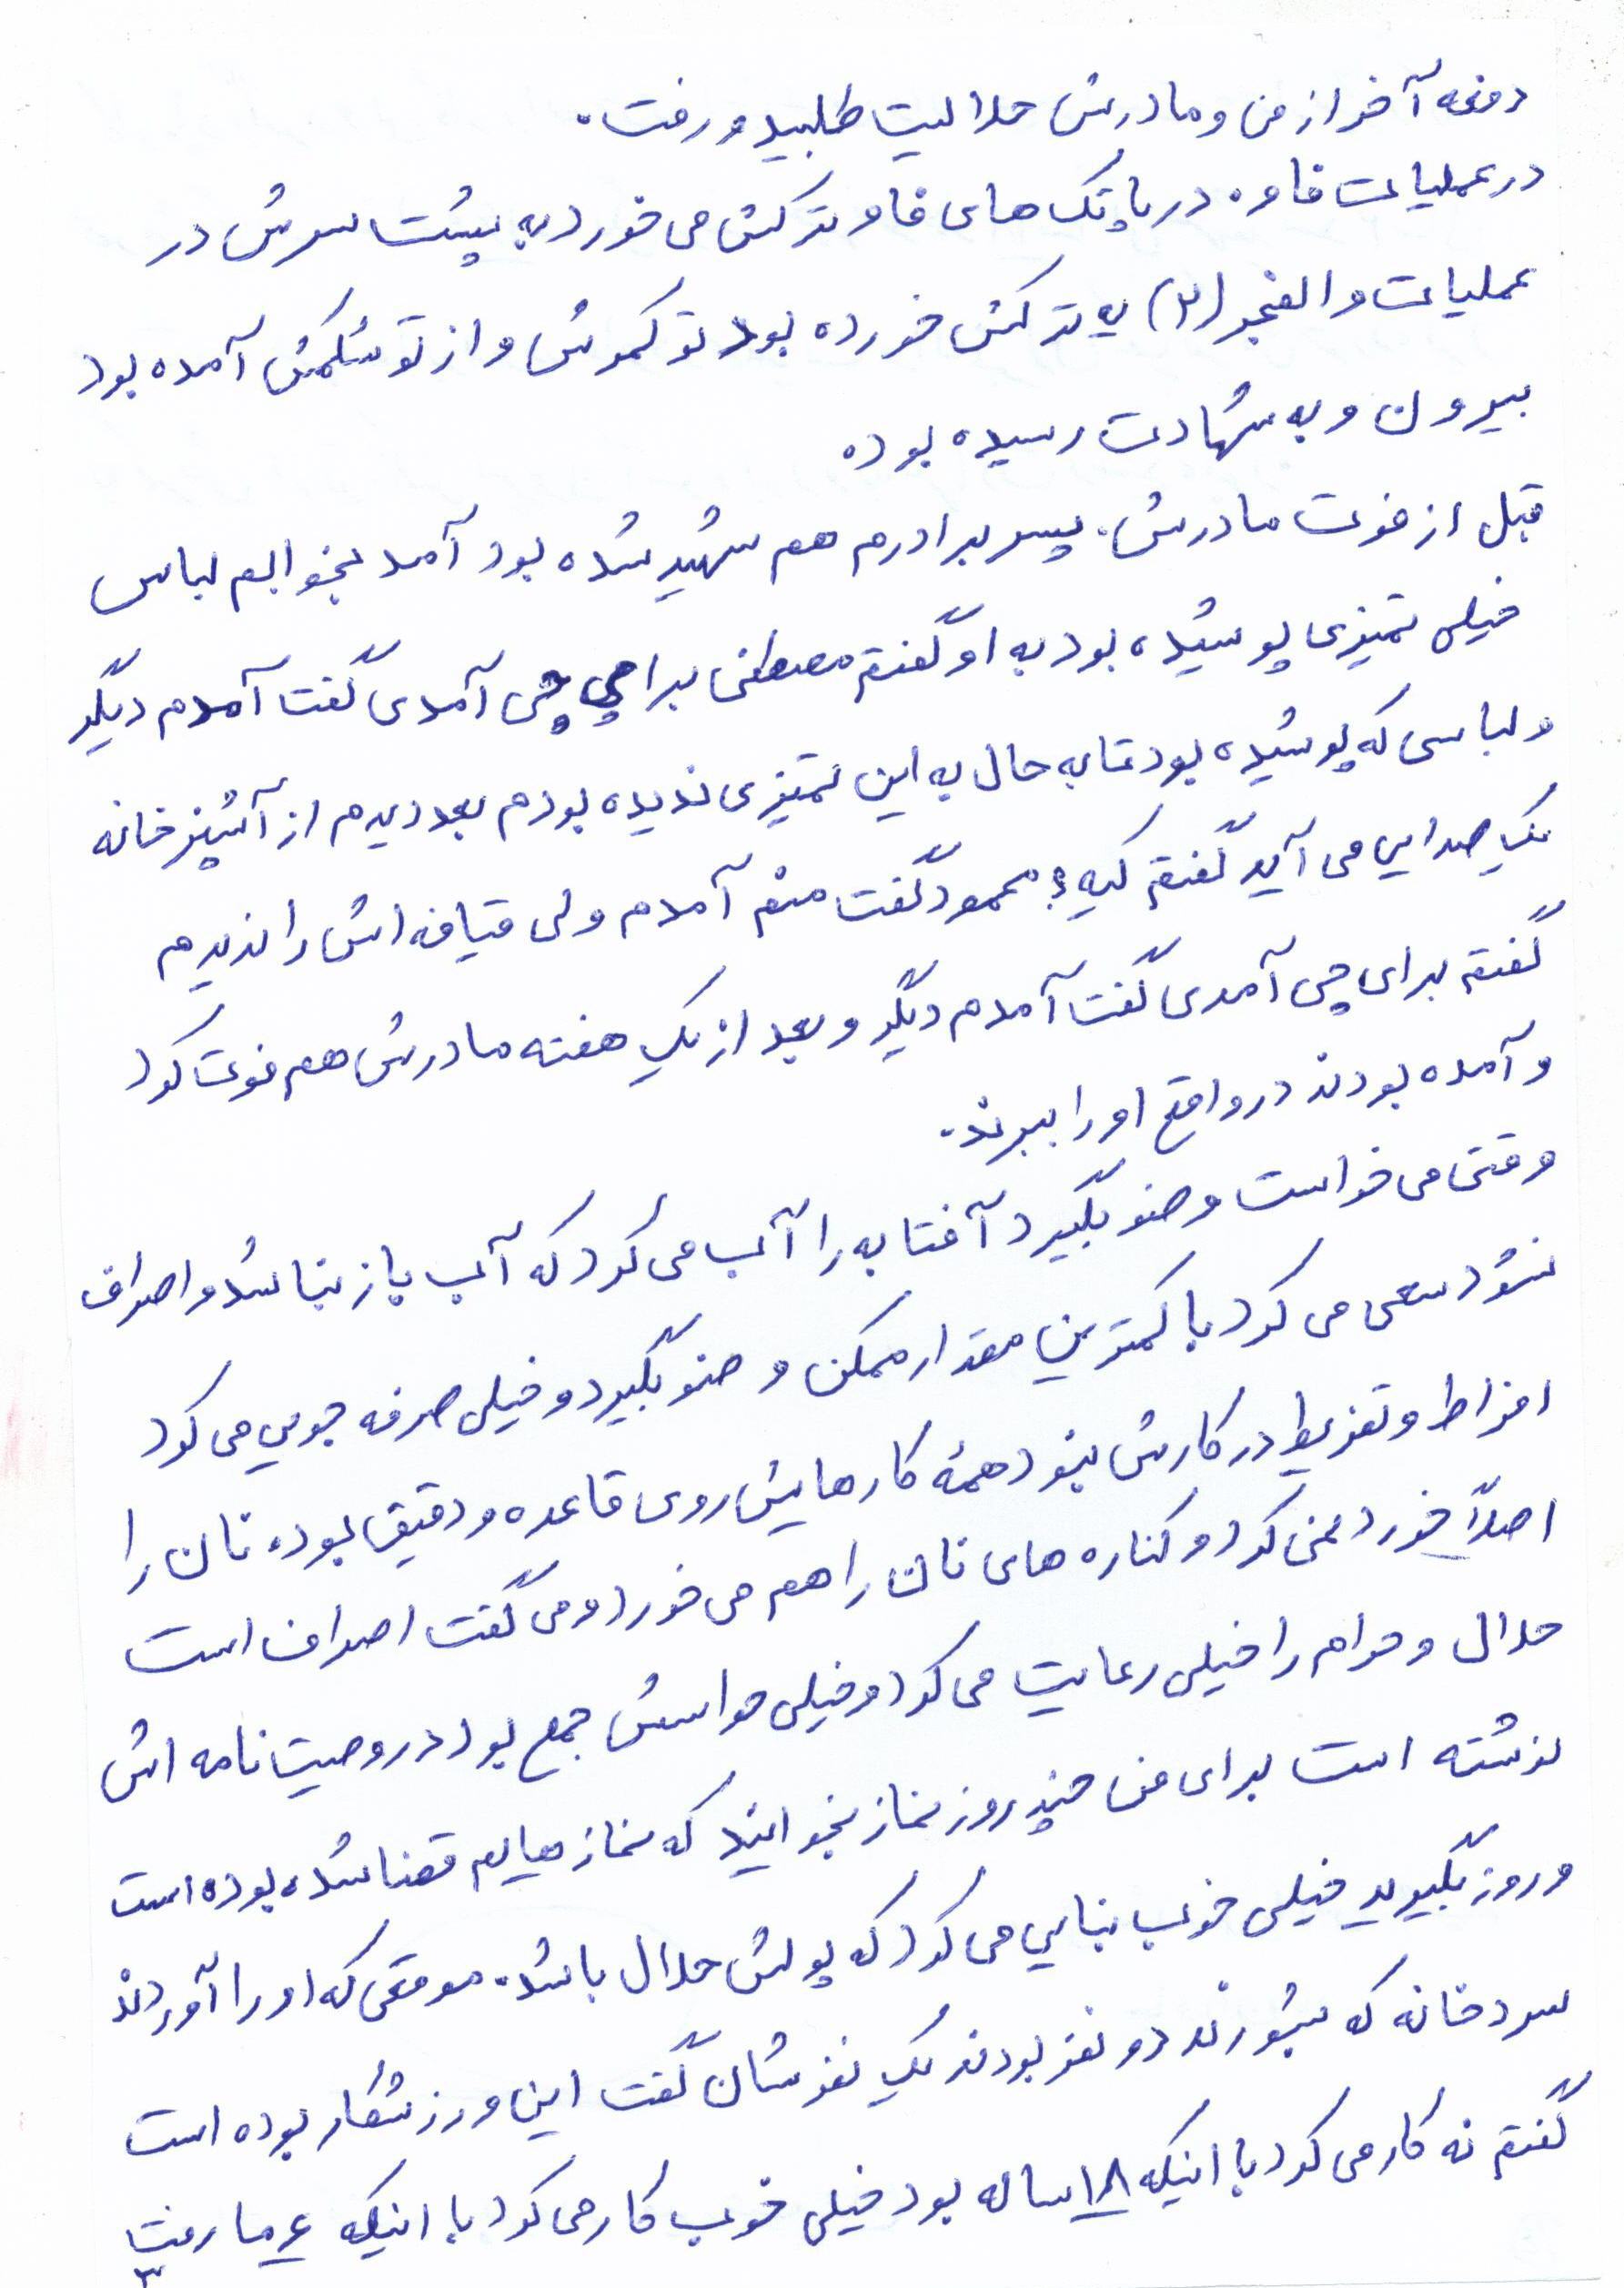 دفعه آخر از من و مادرش حلالیت طلبید و رفت.
در عملیات فاوه در پاتک های فاو ترکش می خورد به پشت سرش در
عملیات والفجر (۲) یه ترکش خورده بود تو کمرش و از تو شکمش آمده بود
بیرون و به شهادت رسیده بوده
قبل از فوت مادرش. پسر برادرم هم شهید شده بود آمد بخوابم لباس
خیلی تمیزی پوشیده بود به او گفتم مصطفی برا چی آمدی گفت آمدم دیگر
و لباسی که پوشیده بود تا به حال به این تمیزی ندیده بودم بعد دیدم از آشپزخانه
یک صدایی می آید گفتم کیه؟ محمود گفت منم آمدم ولی قیافه اش را ندیدم
گفتم برای چی آمدی گفت آمدم دیگر و بعد از یک هفته مادرش هم فوت کرد
و آمده بودند در واقع او را ببرند.
وقتی می خواست وضو بگیرد آفتابه را آب می کرد که آب باز نباشد و اصراف
نشود سعی می کرد با کمترین مقدار ممکن وضو بگیرد و خیلی صرفه جویی می کرد
افراط و تفریط در کارش نبود همهٔ کارهایش روی قاعده و دقیق بوده نان را
اصلاً خورد نمی کرد و کناره های نان را هم می خورد و می گفت اصراف است
حلال و حرام را خیلی رعایت می کرد و خیلی حواسش جمع بود در وصیت نامه اش
نوشته است برای من چند روز نماز بخوانید که نمازهایم قضا شده بوده است
و روزه بگیرید خیلی خوب بنایی می کرد که پولش حلال باشد. موقعی که او را آوردند
سردخانه که بشورند دو نفر بودند یک نفرشان گفت این ورزشکار بوده است
گفتم نه کار می کرد با اینکه ۱۸ ساله بود خیلی خوب کار می کرد با اینکه
۳